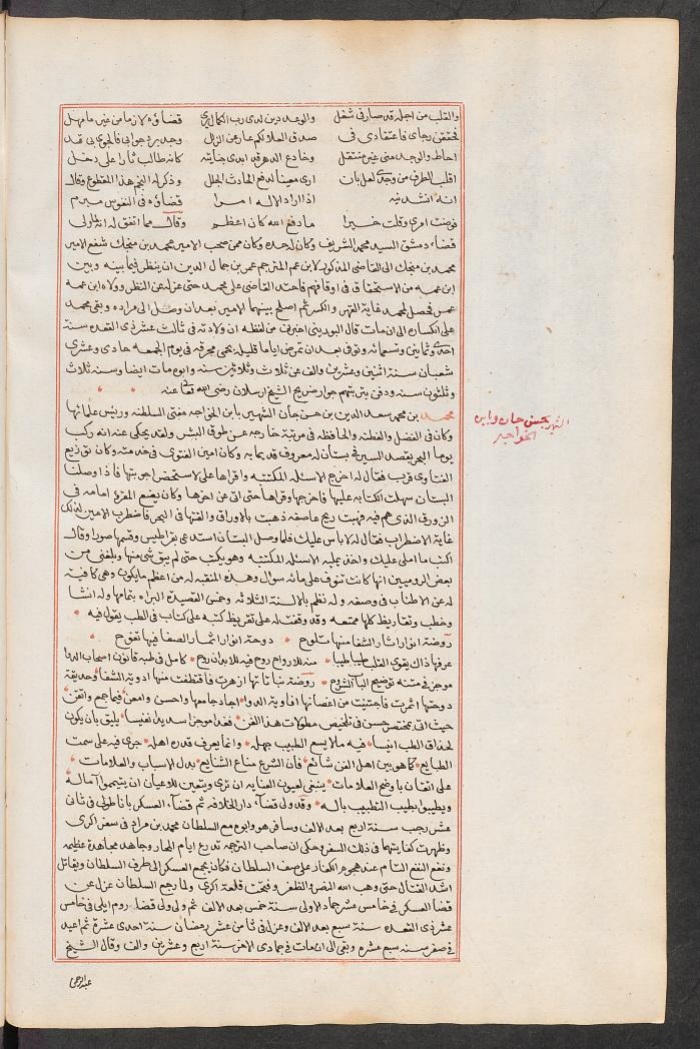 والقلب من اجله قد صار فى شغل والوعد دين لدى رب الكمال يرى قضاؤه لازما من غير ما مهل
فحققن رجاى فاعتقادى فى صدق العلا لكم عار عن الزلل وجد برد جوابى فالجوى بى قد
احاط والوجد عنى غير منتقل وخادع الدهر قد ابدى جنايته كانه طالب ثارا على دخل
اقلب الطرف من وجدى لعل بان ارى معينا لدفع الحادث الجلل وذكر له النجم هذا المقطوع وقال
انه انشدنيه اذا اراد الاله امرا قضاؤه فى النفوس مبرم
فوضت امرى وقلت خيرا ما دفع الله كان اعظم وقال مما اتفق له انه لما ولى
قضاء دمشق السيد محمد الشريف وكان له جده وكان ممن صحب الامير محمد بن منجك شفع الامير
محمد بن منجك الى القاضى المذكور لابن عم المترجم عمر بن جمال الدين ان ينظر فيما بينه وبين
ابن عمه من الاستحقاق فى اوقافهم فاحتد القاضى على محمد حتى عزله عن النظر وولاه ابن عمه
عمر فحصل لمحمد غاية القهر والكسر ثم اصلح بينهما الامير بعد ان وصل الى مراده وبقى محمد
على انكساره الى ان مات قال البورينى اخبرنى من لفظه ان ولادته فى ثالث عشر ذى القعده سنة
احدى وثمانين وتسعمائه وتوفى بعد ان تمرض اياما قليله بحمى محرقه فى يوم الجمعه حادى وعشرى
شعبان سنة اثنين وعشرين والف عن ثلاث وثلاثين سنه وابوه مات ايضا وسنه ثلاث
وثلثون سنه ودفن بتربتهم جوار ضريح الشيخ ارسلان رضى الله تعالى عنه
محمد بن محمد سعد الدين بن حسن جان الشهير بابن الخواجه مفتى السلطنه ورئيس علمائها
وكان فى الفضل والفطنه والحافظه فى مرتبة خارجه عن طوق البشر ولقد يحكى عنه انه ركب
يوما البحر بقصد السير فى بستان له معروف قديما به وكان امين الفتوى فى خدمته وكان توزيع
الفتاوى قرب فقال له اخرج الاسئله المكتتبه واقراها على لاستحضر اجوبتها فاذا وصلنا
البستان سهلت الكتابه عليها فاخرجها وقراها حتى اتى عن اخرها وكان يضع المقرؤ امامه فى
الزورق الذى هم فيه فهبت ريح عاصفه ذهبت بالاوراق والقتها فى البحر فاضطرب الامين لذلك
غاية الاضطراب فقال له لا باس عليك فلما وصل البستان استدعى بقراطيس وقسمها صورا وقال
اكتب ما املى عليك واخذ يمليه الاسئله المكتتبه وهو يكتب حتى لم يبق شى منها وبلغنى من
بعض الروميين انها كانت تنوف على مائة سوال وهذه المنقبه له من اعظم ما يكون وهى كافيته
له عن الاطناب فى وصفه وله نظم بالالسنة الثلاثه وخمس القصيدة البراءه بتمامها وله انشا
وخطب وتقاريظ كلها ممتعه وقد وقفت له على تقريظ كتبه على كتاب فى الطب يقول فيه
روضة انوار اثار الشفا منها تلوح دوحة انوار اثمار الصفا فيها تفوح
عرفها ذاك يقوى القلب طيبا طيبا منه للارواح روح فيه للابدان روح كامل فى طبه قانون اصحاب الدوا
موجز فى متنه توضيح الباب الشروح روضة نباتاتها ازهرت فاقتطفت منها ادوية الشفا وحديقة
دوحتها اثمرت فاجتنيت من اغصانها افاوية الدوا اجاد جامعها واحسن وامعن فيما جمع واتقن
حيث اتى بمختصر حسن فى تلخيص مطولات هذا الفن فغدا موجزا سديدا نفيسا يليق بان يكون
لحذاق الطب انيسا فيه ما لا يسع الطبيب جهله وانما يعرف قدره اهله جرى فيه على سمت
الطبايع كما هو بين اهل الفن شائع فان الشرع مناع الشنايع يدل الاسباب والعلامات
على اتقان باوضح العلامات ينبغى لعيون العنايه ان ترى ويتعين للاعيان ان يتيمموا آماله
ويطيبوا بطيب التطبيب باله وقد ولى قضاء دار الخلافه ثم قضاء العسكر باناطولى فى ثانى
عشر رجب سنة اربع بعد الالف وسافر هو وابوه مع السلطان محمد بن مراد فى سفر اكرى
وظهرت كفايتهما فى ذلك السفر وحكى ان صاحب الترجمه تدرع ايام الحار وجاهد مجاهدة عظيمه
ونفع النفع التام عند هجوم الكفار على صف السلطان فكان يجمع العسكر الى طرف السلطان ويقاتل
اشد القتال حتى وهب الله النصر والظفر وفتحت قلعة اكرى ولما رجع السلطان عزل عن
قضا العسكر فى خامس عشر جماد الاولى سنة خمس بعد الالف ثم ولى ولى قضا روم ايلى فى خامس
عشر ذى القعده سنة سبع بعد الالف وعزل فى ثامن عشر رمضان سنة احدى عشرة ثم اعيد
فى صفر سنه سبع عشره وبقى الى ان مات فى جمادى الاخر سنة اربع وعشرين والف وقال الشيخ
عبد الرحمن
الشهير بحسن جان وابن
الخواجه